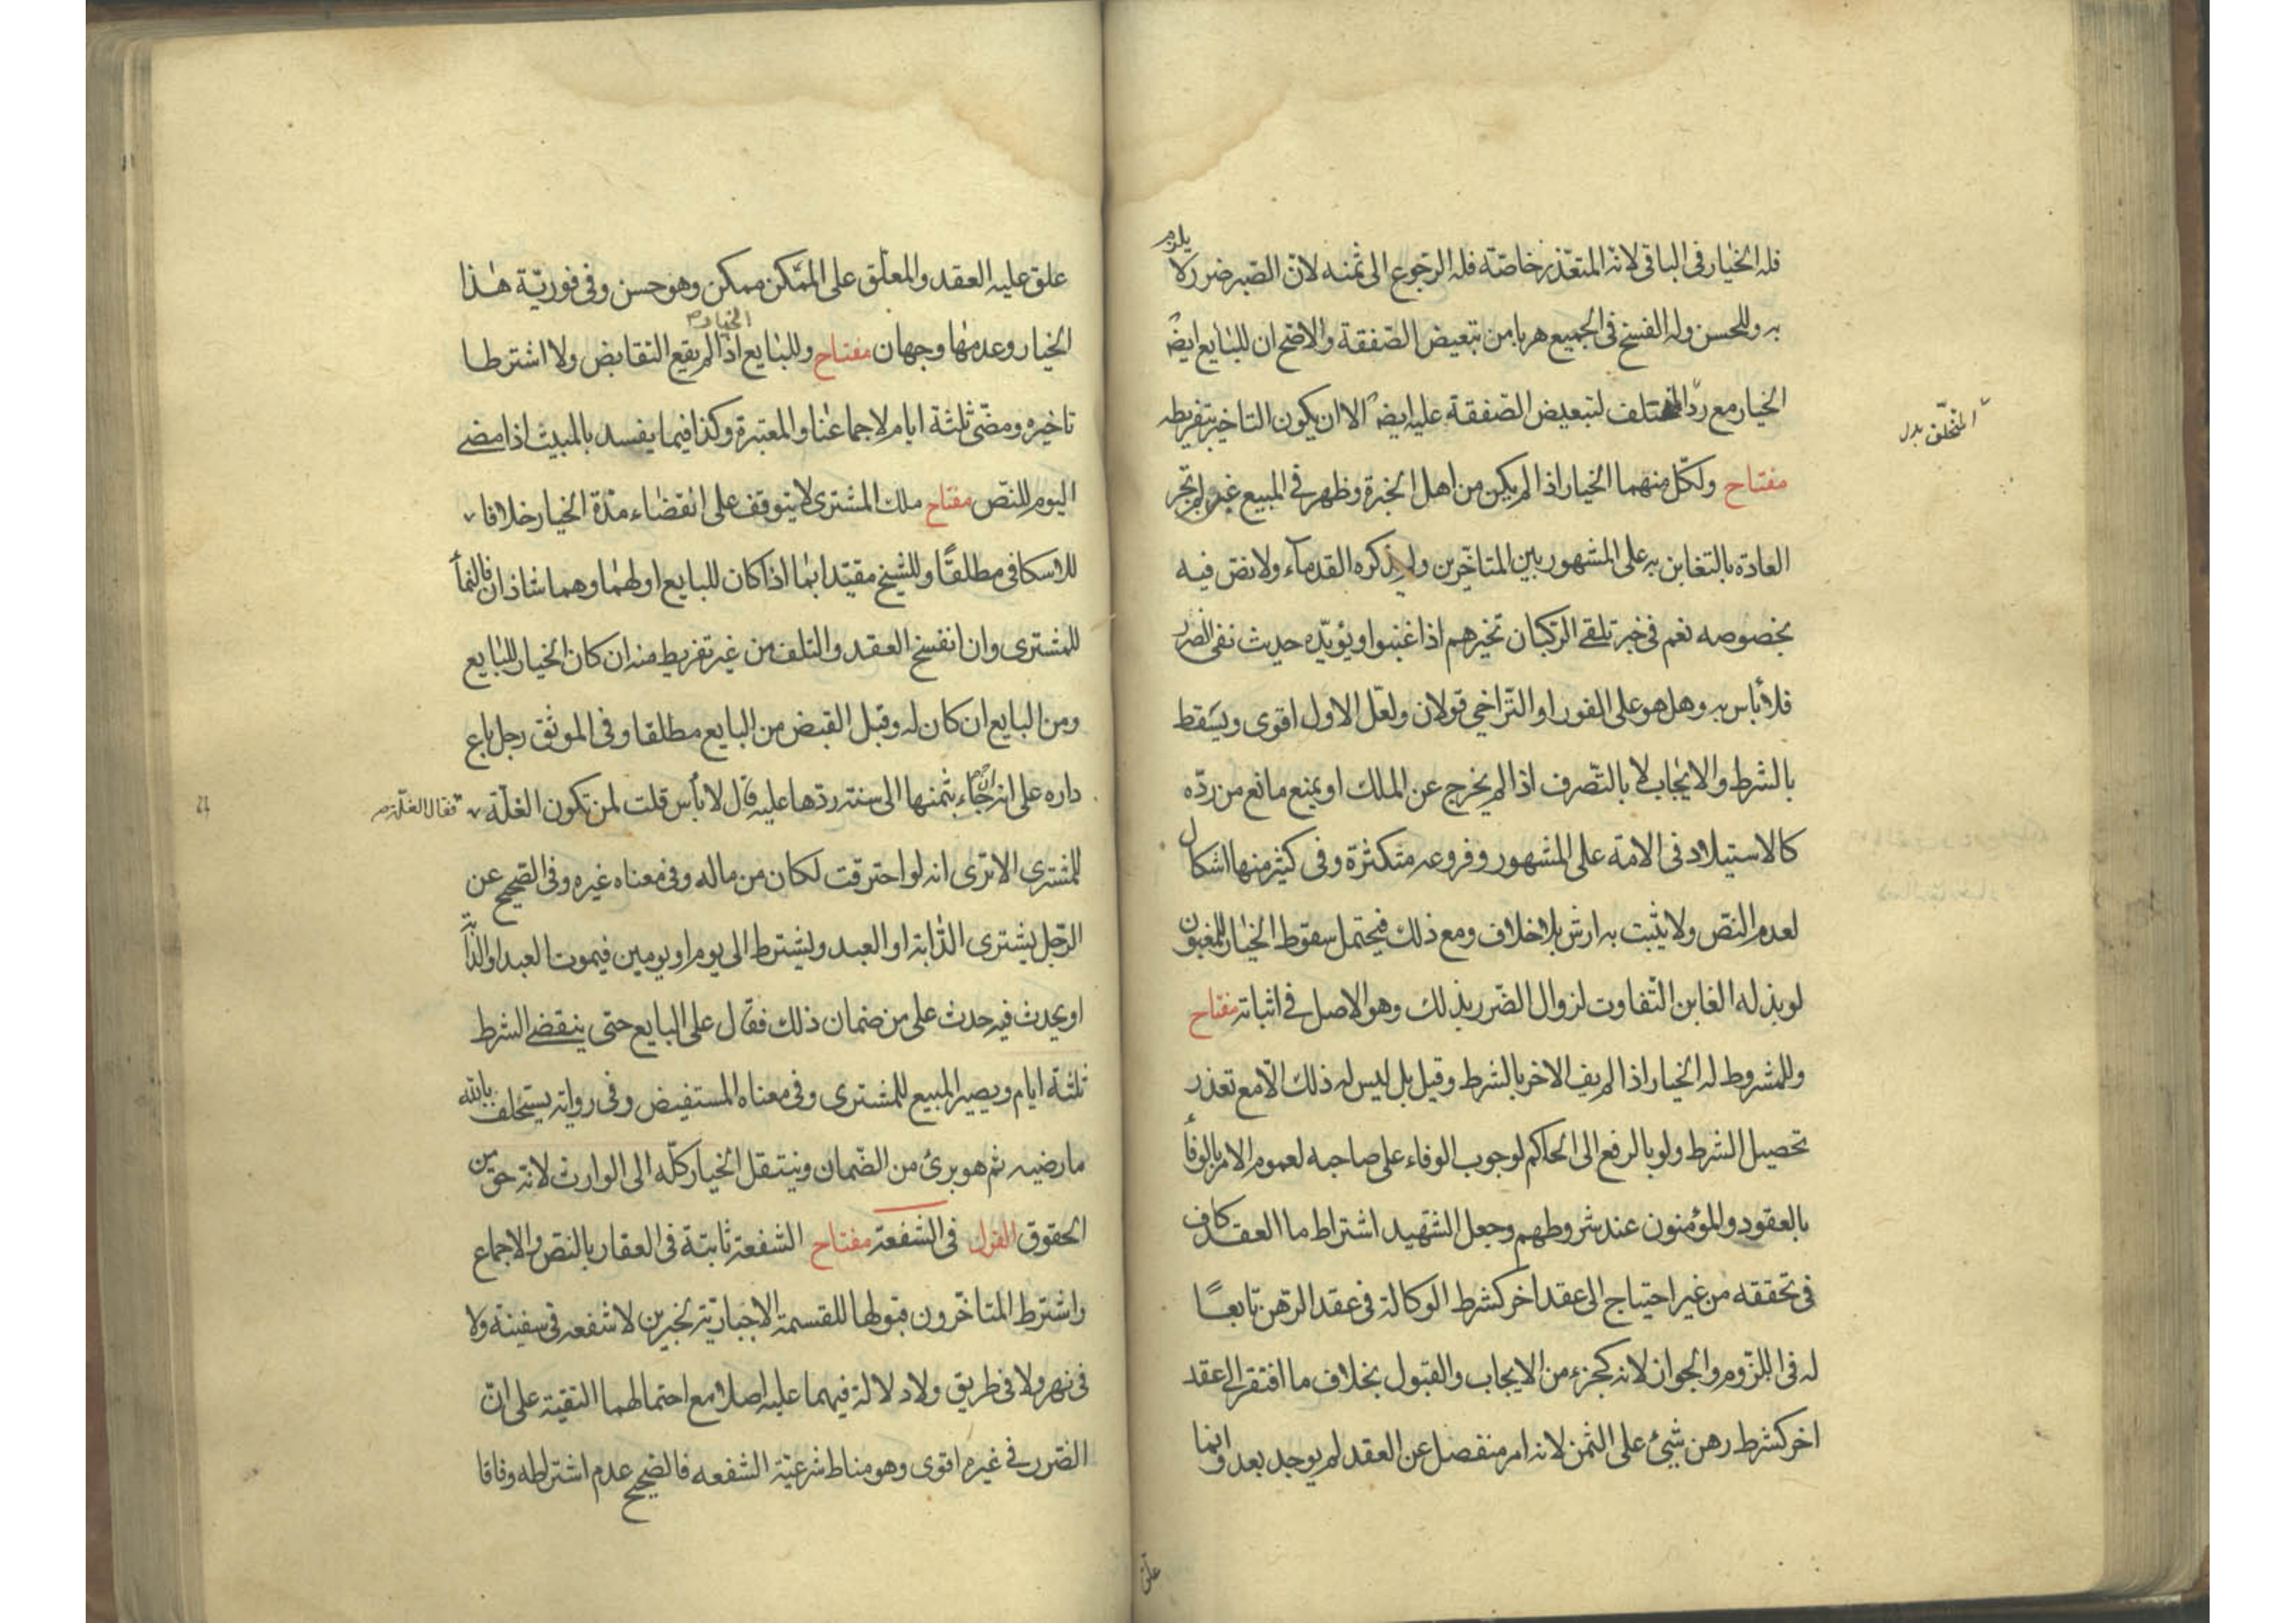 فله الخيار فى الباقى لانه المتعذر خاصة فله الرجوع الى ثمنه لان الصبر ضرر لا يلزم
به وللحسن وله الفسخ فى الجميع هربا من تبعيض الصفقة والاصح ان للبايع ايضا
الخيار مع رد المختلف لتبعيض الصفقة عليه ايضا الا ان يكون التاخير بتفريطه
المتخلف بدل
مفتاح ولكل منهما الخيار اذا لم يكن من اهل الخبرة وظهر فى المبيع غبن لم تجر
العادة بالتغابن به على المشهور بين المتاخرين ولم يذكره القدماء ولا نص فيه
بخصوصه نعم فى خبر تلقى الركبان تخيرهم اذا غبنوا ويؤيده حديث نفى الضرر
فلا بأس به وهل هو على الفور او التراخى قولان ولعل الاول اقوى ويسقط
بالشرط والايجاب لا بالتصرف اذا لم يخرج عن الملك او يمنع مانع من رده
كالاستيلاد فى الامة على المشهور وفروعه متكثرة وفى كثير منها اشكال
لعدم النص ولا يثبت به ارش بلا خلاف ومع ذلك فيحتمل سقوط الخيار للمغبون
لو بذل له الغابن التفاوت لزوال الضرر بذلك وهو الاصل فى اثباته مفتاح
وللمشروط له الخيار اذا لم يف الاخر بالشرط وقيل بل ليس له ذلك الا مع تعذر
تحصيل الشرط ولو بالرفع الى الحاكم لوجوب الوفاء على صاحبه لعموم الامر بالوفاء
بالعقود والمؤمنون عند شروطهم وجعل الشهيد اشتراط ما العقد كاف
فى تحققه من غير احتياج الى عقد اخر كشرط الوكالة فى عقد الرهن تابعًا
له فى اللزوم والجواز لانه كجزء من الايجاب والقبول بخلاف ما افتقر الى عقد
اخر كشرط رهن شىء على الثمن لانه امر منفصل عن العقد لم يوجد بعد وانما
علق
علق عليه العقد والمعلق على الممكن ممكن وهو حسن وفى فورية هذا
الخيار وعدمها وجهان مفتاح وللبايع الخيار اذا لم يقع التقابض ولا اشترطا
تاخيره ومضى ثلثة ايام لاجماعنا والمعتبرة وكذا فيما يفسد بالمبيت اذا مضى
اليوم للنص مفتاح ملك المشترى لا يتوقف على انقضاء مدة الخيار خلافا
للاسكافى مطلقًا وللشيخ مقيدا بما اذا كان للبايع او لهما وهما شاذان فالنماء
للمشترى وان انفسخ العقد والتلف من غير تفريط منه ان كان الخيار للبايع
ومن البايع ان كان له وقبل القبض من البايع مطلقا وفى الموثق رجل باع
داره على انه ان جاء بثمنها الى سنة ردها عليه قال لا بأس قلت لمن تكون الغلة فقال الغلة
للمشترى الا ترى انه لو احترقت لكان من ماله وفى معناه غيره وفى الصحيح عن
الرجل يشترى الدابة او العبد ويشترط الى يوم او يومين فيموت العبد او الدابة
او يحدث فيه حدث على من ضمان ذلك فقال على البايع حتى ينقضى الشرط
ثلثة ايام ويصير المبيع للمشترى وفى معناه المستفيض وفى رواية يستحلف بالله
ما رضيه ثم هو برئ من الضمان وينتقل الخيار كله الى الوارث لانه حق من
الحقوق القول فى الشفعة مفتاح الشفعة ثابتة فى العقار بالنص والاجماع
واشترط المتاخرون قبولها للقسمة الاجبارية لخبرين لا شفعه فى سفينة ولا
فى نهر ولا فى طريق ولا دلالة فيهما عليه اصلا مع احتمالهما التقية على ان
الضرر فى غيره اقوى وهو مناط شرعية الشفعه فالصحيح عدم اشتراطه وفاقا